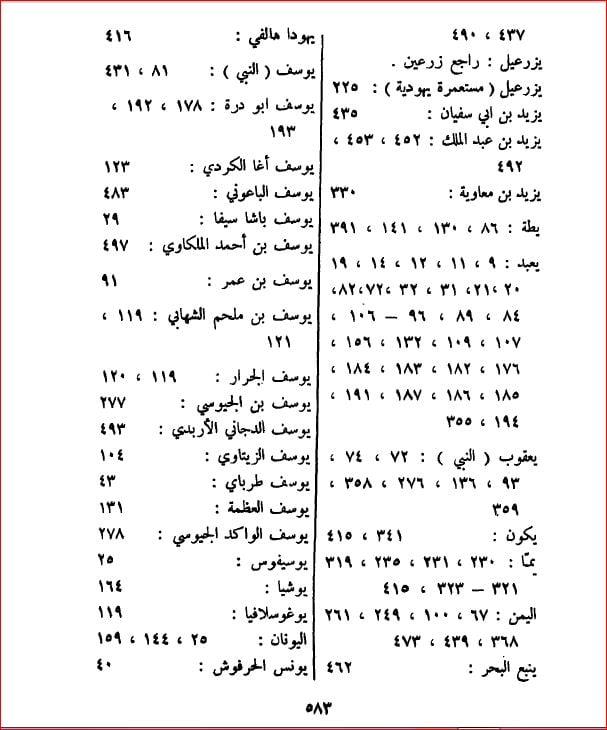 ٤٣٧ ، ٤٩٠
يزرعيل : راجع زرعين .
يزرعيل ( مستعمرة يهودية ) : ٢٢٥
يزيد بن ابي سفيان : ٤٣٥
يزيد بن عبد الملك : ٤٥٢ ، ٤٥٣ ،
٤٩٢
يزيد بن معاوية : ٣٣٠
يطة : ٨٦ ، ١٣٠ ، ١٤١ ، ٣٩١
يعبد : ٩ ، ١١ ، ١٢ ، ١٤ ، ١٩
٢٠ ،٢١، ٣١ ، ٣٢ ،٧٢ ،٨٢،
٨٤ ، ٨٩ ، ٩٦ – ١٠٦ ،
١٠٧ ، ١٠٩ ، ١٣٢ ، ١٥٦ ،
١٧٦ ، ١٨٢ ، ١٨٣ ، ١٨٤ ،
١٨٥ ، ١٨٦ ، ١٨٧ ، ١٩١ ،
١٩٤ ، ٣٥٥
يعقوب ( النبي ) : ٧٢ ، ٧٤ ،
٩٣ ، ١٣٦ ، ٢٧٦ ، ٣٥٨ ،
٣٥٩
يكون : ٣٤١ ، ٤١٥
يمّا : ٢٣٠ ، ٢٣١ ، ٢٣٥ ، ٣١٩
٣٢١ – ٣٢٣ ، ٤١٥
اليمن : ٦٧ ، ١٠٠ ، ٢٤٩ ، ٢٦١
٣٦٨ ، ٤٣٩ ، ٤٧٣
ينبع البحر : ٤٦٢
يهودا هالفي : ٤١٦
يوسف ( النبي ) : ٨١ ، ٤٣١
يوسف ابو درة : ١٧٨ ، ١٩٢ ،
١٩٣
يوسف أغا الكردي : ١٢٣
يوسف الباعوني : ٤٨٣
يوسف باشا سيفا : ٢٩
يوسف بن أحمد الملكاوي : ٤٩٧
يوسف بن عمر : ٩١
يوسف بن ملحم الشهابي : ١١٩ ،
١٢١
يوسف الجرار : ١١٩ ، ١٢٠
يوسف بن الجيوسي : ٢٧٧
يوسف الدجاني الأربدي : ٤٩٣
يوسف الزيتاوي : ١٠٤
يوسف طرباي : ٤٣
يوسف العظمة : ١٣١
يوسف الواكد الجيوسي : ٢٧٨
يوسيفوس : ٢٥
يوشيا : ١٦٤
يوغوسلافيا : ١١٩
اليونان : ٢٥ ، ١٤٤ ، ١٥٩
يونس الحرفوش : ٤٠
٥٨٣